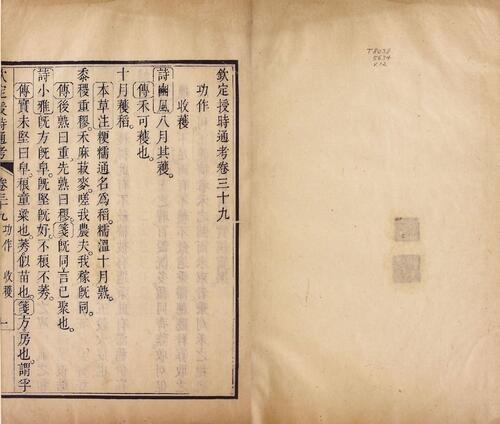 欽定授時通考卷三十九
功作
收穫
詩豳風八月其穫。
傳禾可穫也。
十月穫稻。
本草注粳糯通名爲稻。糯溫十月熟。
黍稷重穋。禾麻菽麥。嗟我農夫。我稼旣同。
傳後熟曰重先熟曰穋。箋旣同言已聚也。
詩小雅旣方旣皁。旣堅旣好。不稂不莠。
傳實未堅曰皁。稂童粱也。莠似苗也。箋方房也。謂孚
欽定授時通考 卷三十九 功作 收穫 一
T8038
5634
v.12